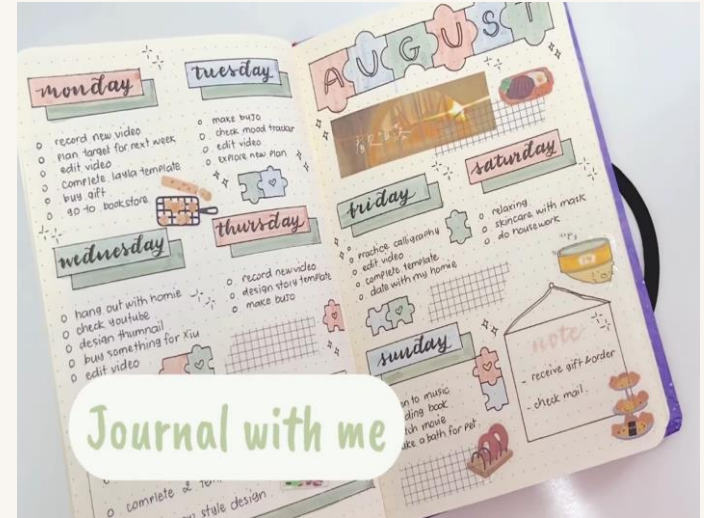 monday
record new video
plan target for next week
edit video
complete layla template
buy gift
go to bookstore
tuesday
make bujo
check mood tracker
edit video
explore new plan
wednesday
hang out with homie
check youtube
design thumnail
buy something for Xiu
edit video
thursday
record new video
design story template
make bujo
complete
style design
AUGUST
friday
practice calligraphy
edit video
complete template
date with my homie
saturday
relaxing
skincare with mask
do housework
sunday
to music
book
movie
a bath for pet
note
- receive gift & order
- check mail
Journal with me